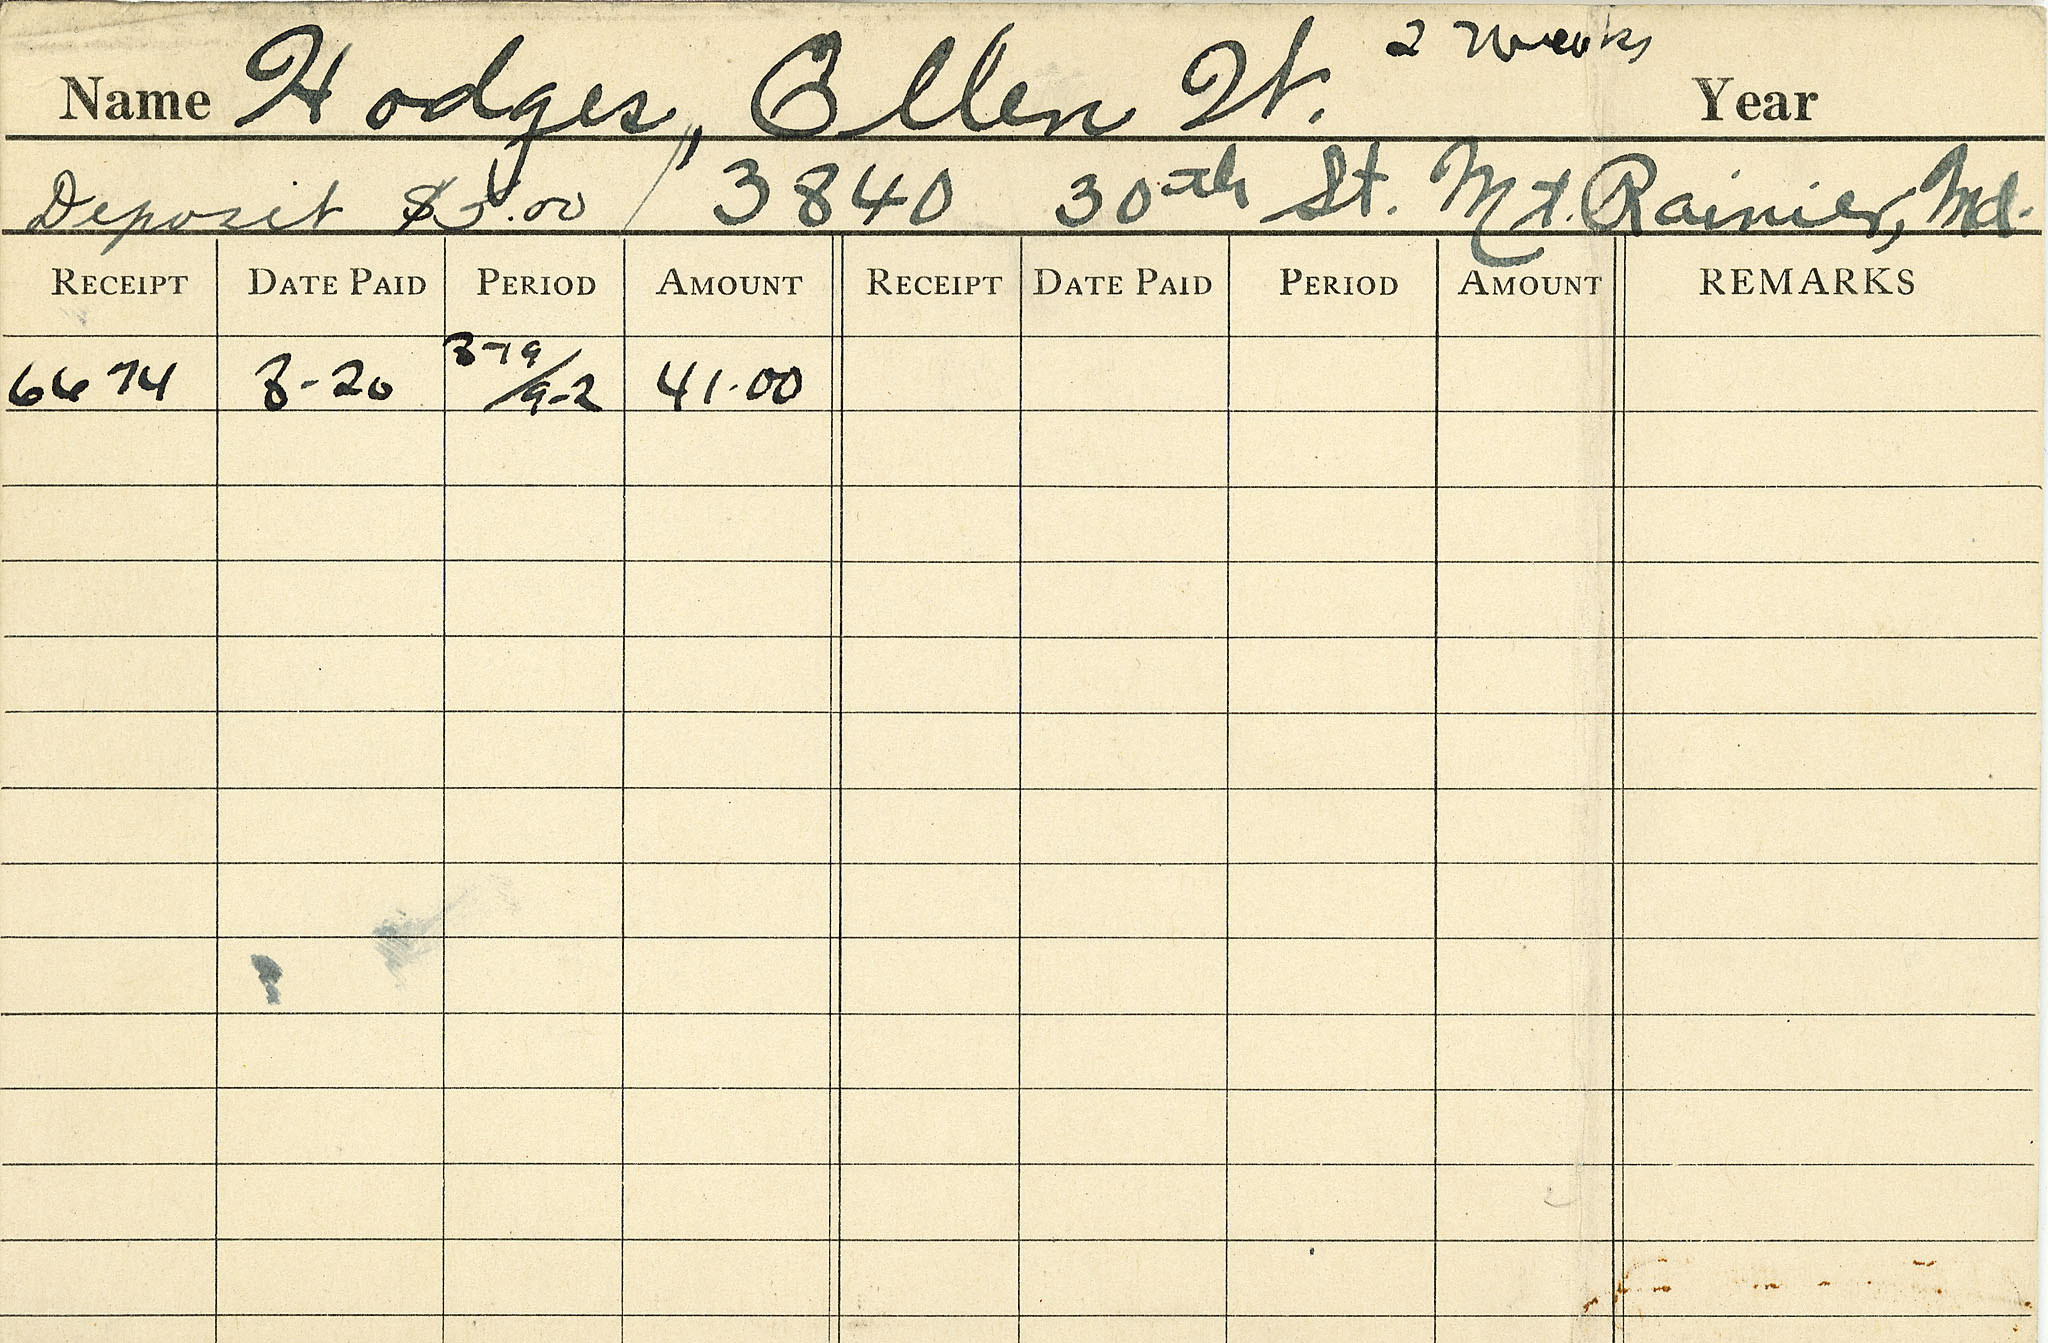 Name Hodges, Ellen W. 2 Weeks Year
Deposit $5.00 / 3840 30th St. Mt. Rainier, Md.
RECEIPT DATE PAID PERIOD AMOUNT RECEIPT DATE PAID PERIOD AMOUNT REMARKS
6674 8-20 8-19/9-2 41.00